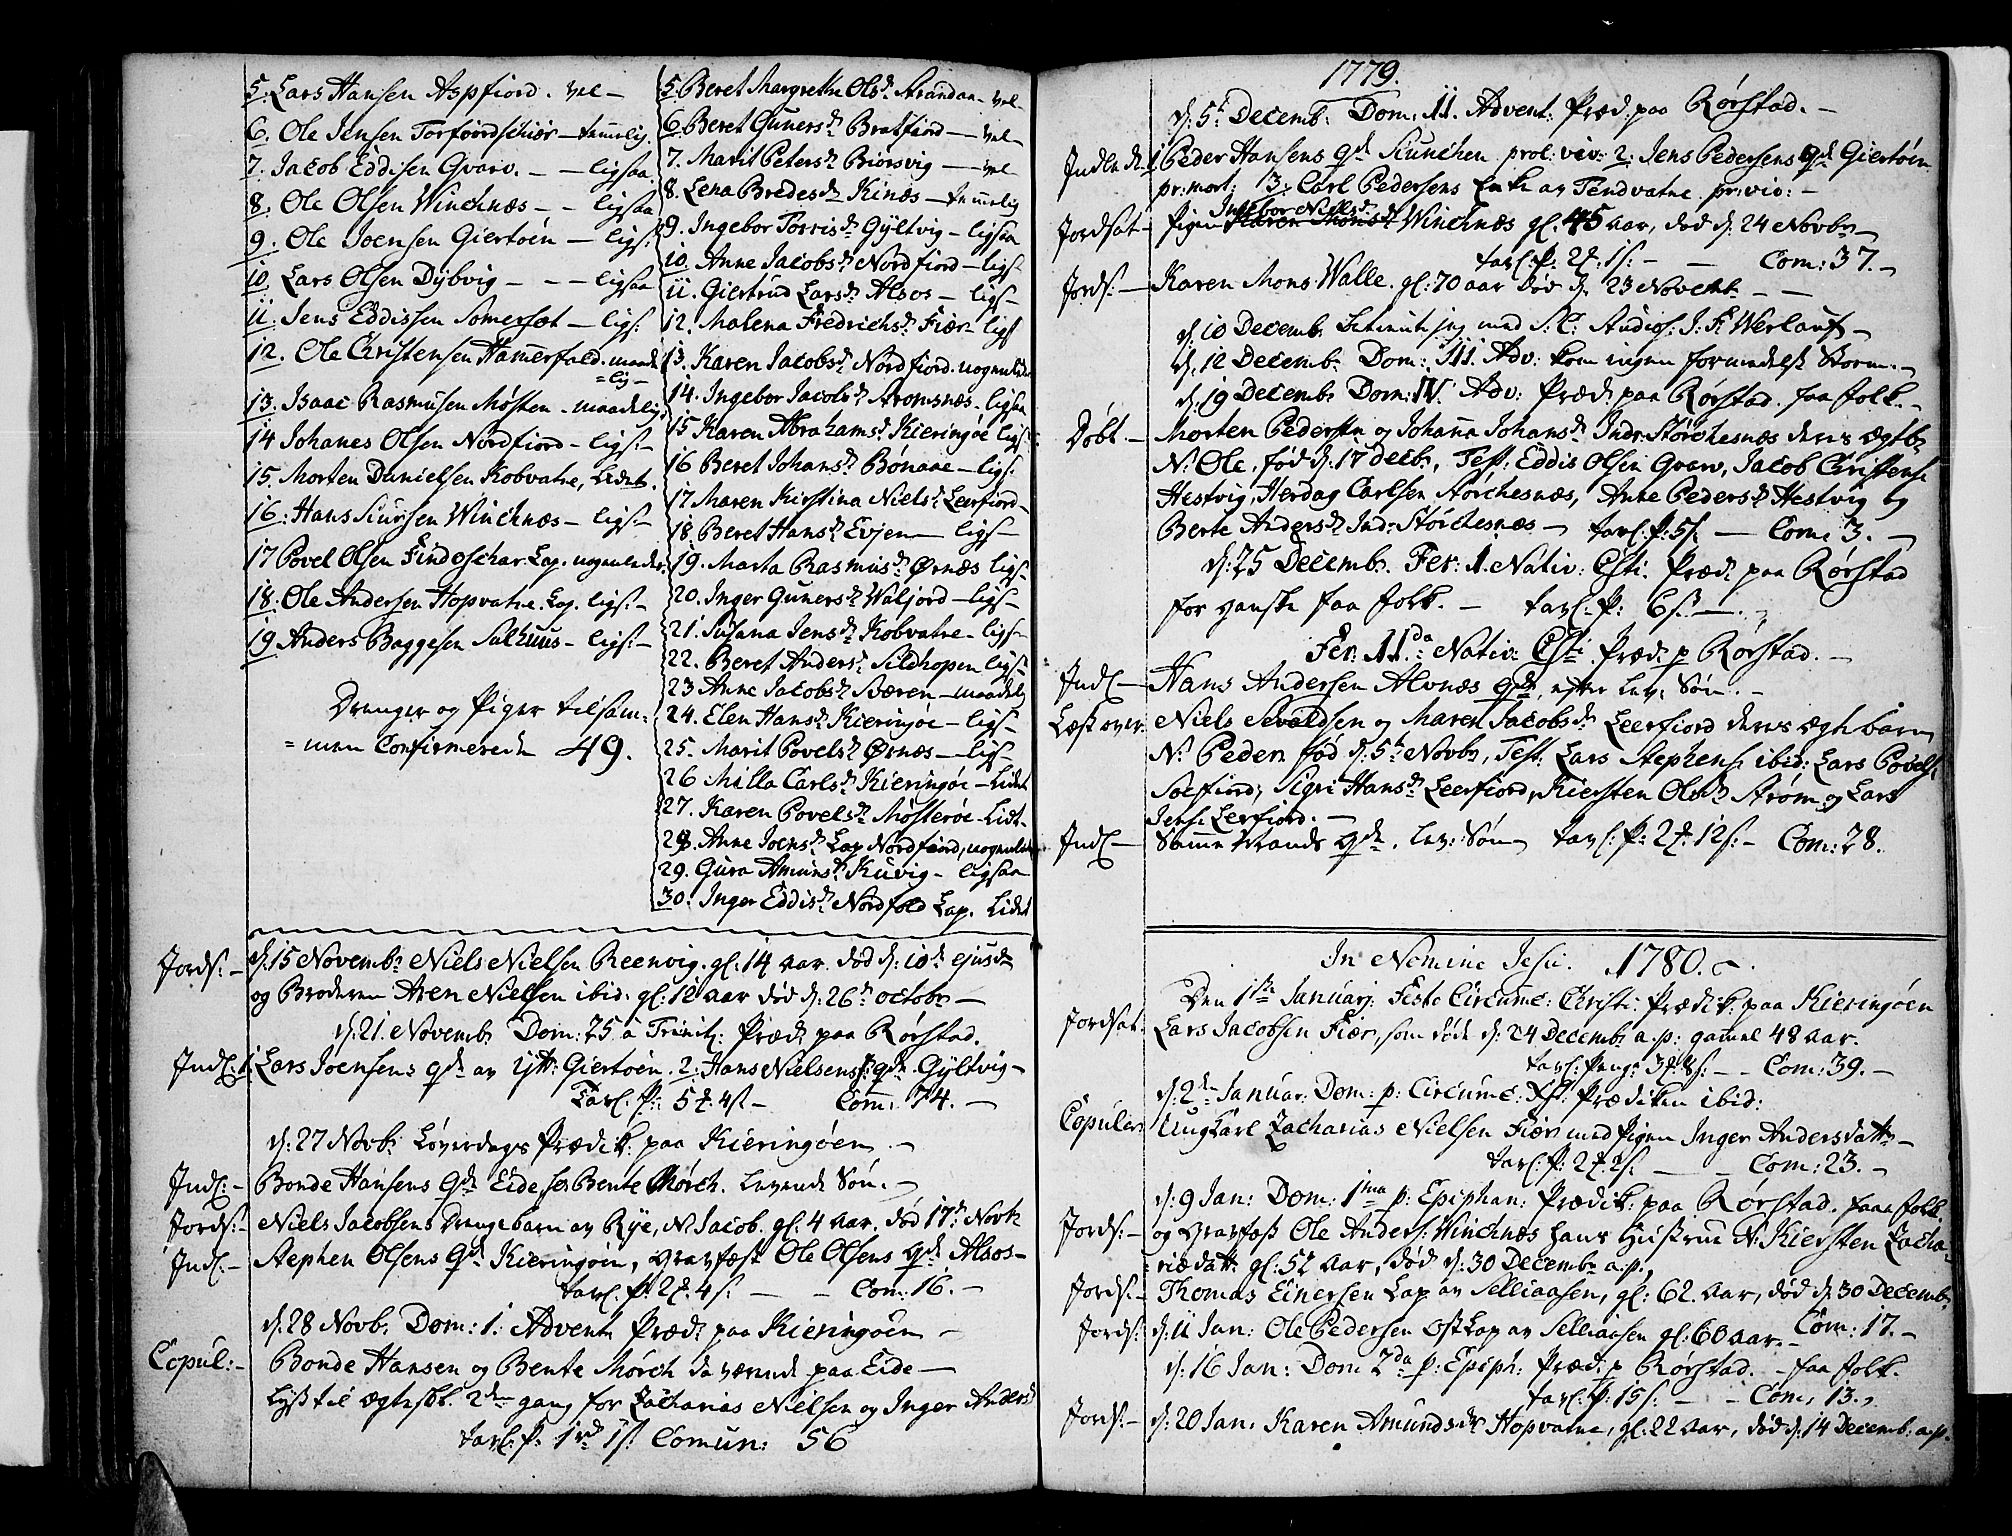 5. Lars Hansen Aspfiord. vel –
6. Ole Jensen Torfiordschiær – temmelig.
7. Jacob Eddisen Gvarv. – – ligsaa
8. Ole Olsen Winchnæs – – ligsaa
9. Ole Joensen Giertøen – ligs:
10. Lars Olsen Dybvig – – – ligsaa
11. Jens Eddissen Somerset – ligs:
12. Ole Christensen Hamerfald. maade
=lig –
13. Isaac Rasmusen Møsten – maadelig
14 Johanes Olsen Nordfiord – ligs: –
15. Morten Danielsen Kobvatne, Lidet.
16. Hans Siursen Winchnæs – ligs: –
17 Povel Olsen Findoschar Lap. nogenleder
18. Ole Andersen Hopvatne. Lap. ligs: –
19 Anders Baggesen Salhuus – ligs: –
Drenger og Piger tilsam:
= men Confirmerede 49.
5 Beret Margrethe Olsd. Strandaa – vel –
6 Beret Gunersd. Bratfiord – vel –
7. Marit Petersd. Biorsvig – vel
8. Lena Bredesd. Kinæs – temmelig
9. Ingebor Torrisd. Gyltvig – ligsaa
10. Anne Jacobsd. Nordfiord – ligs:
11. Giertrud Larsd. Alsos – ligs –
12. Malena Fredrichsd. Fiær – ligs
13. Karen Jacobsd. Nordfiord. nogenleder
14. Ingebor Jacobsd. Stromsnæs – ligsaa
15 Karen Abrahamsd. Kieringøe ligs:
16 Beret Johansd. Bonaae – ligs:
17 Maren Kirstina Nielsd. Leerfiord –
18 Beret Hansd. Evjen – ligs –
19. Marta Rasmusd. Ørnæs ligs –
20. Inger Gunersd. Waljord – ligs –
21. Susana Jensd. Kobvatne – ligs –
22. Beret Andersd. Sildhopen ligs:
23 Anne Jacobsd. Bæren – maadelig
24. Elen Hansd. Kieringøe – ligs –
25. Marit Povelsd. Ørnæs – ligs –
26 Milla Carlsd. Kieringøe – Lidet
27. Karen Povelsd. Møsterøe – Lidt –
28. Anne Joensd. Lap Nordfiord, nogenleder
29. Gura Amunsd. Kuvig – ligsaa
30. Inger Eddisd. Nordfold Lap. Lidet
Jords: – d. 15 Novembr. Niels Nielsen Reenvig. gl: 14 aar. død d: 10de ejusd.
og Broderen Aren Nielsen ibid: gl: 12 aar død d: 26d. octobr. –
d: 21. Novembr. Dom: 25 a Trinit: Præd: paa Rørstad.
Indl: 1. Lars Joensens qde av ytt: Giertøen. 2. Hans Nielsens qde Gyltvig –
Tavl: P: 5 ₰: 4 ß – Com: 74. –
d: 27 Novb: Løverdags Prædik: paa Kieringøen. –
Indl: – Bonde Hansens Qde Eide, sc Bente Mørch. Levende Søn. –
Jords: – Niels Jacobsens Drengebarn av Rye, N. Jacob. gl: 4 aar. død 17de Novb.
Indl: – Stephen Olsens Qde Kieringøen, Gravfæst Ole Olsens Qde Alsos –
tavl: P: 2 ₰: 4 ß: – – Com: 16. –
d: 28 Novb. Dom: 1. Advent. Præd: paa Kieringøen –
Copul: – Bonde Hansen og Bente Mørch da værende paa Eide –
Lyst til ægtesk: 2den gang for Zacharias Nielsen og Inger Andersd.
tavl: P: 1 rd 1 ß: Comun: 56
1779.
d: 5t Decemb: Dom: 11. Advent: Præd: paa Rørstad. –
Indlede: 1 Peder Hansens qde Siunchen prol: viv: 2. Jens Pedersens qde Giertøen
pr: mort: 3. Carl Pedersens Enke av Tendvatne pr: viv: –
Ingebor Nielsd.
Jordsat – Pigen Karen Monsd. Winchnæs gl: 45 aar, død d: 24 Novbr –
tavl: P: 2 ₰: 1 ß: – – Com: 37. –
Jords: – Karen Mons Walle. gl: 70 aar død d. 23 Novembr. – –
d: 10 Decemb: betient jeg med S: C: Studios: J. F. Werlauf –
d. 12 Decemb: Dom: 111. Adv: kom ingen formedelst Storm. –
d. 19 Decemb. Dom: IV. Adv: Præd: paa Rørstad. faa folk. –
Døbt – Morten Pedersen og Johana Johansd. Indr: Størchesnæs deres ægteb:
N. Ole. fød d: 17 decb:, Test: Eddis Olsen Gvarv, Jacob Christens:
Hestvig, Herdag Carlsen Størchesnæs, Anne Pedersd. Hestvig og
Berte Andersd. Ind: Størchesnæs – tavl: P: 5 ß: – Com: 3. –
d: 25 Decemb. Fer: 1. Nativ: Csti. Præd: paa Rørstad
for ganske faa folk. – tavl: P: 6 ß: –
Fer: 11da Nativ: Csti Præd: p Rørstad. –
Indl: – Hans Andersen Alvnæs qde, efter Lev: Søn. –
Læst over Niels Sevaldsen og Maren Jacobsd. Leerfiord deres ægte barn
N. Peder fød d: 5te Novb., Test: Lars Stephens: ibid: Lars Povels:
Soefiord, Sigri Hansd. Leerfiord, Kiersten Olsd. Strøm og Lars
Jens: Lerfiord. –
Indl: – Samme Mands qde. lev: Søn tavl: P: 2 ₰: 12 ß: – Com: 28.
In Nomine Jesu. 1780.
Den 1ste Januarj: Festo Circumc: Christi: Prædik: paa Kieringøen
Jordsat: Lars Jacobsen Fiær, som døde d: 24 Decemb. a. p: gamel 48 aar.
tavl: Peng: 3 ₰ 8 ß: – – Com: 39. –
d: 2den Januar: Dom: p: Circumc: Xsti. Prædiken ibid:
Copuler Ung Karl Zacharias Nielsen Fiær med Pigen Inger Andersdatt –
tavl: P: 2 ₰: 2 ß: – – Com: 23. –
d: 9 Jan: Dom: 1ma p: Epiphan: Prædik: paa Rørstad. faae folk
Jords: – og Gravfæst Ole Anders: Winchnæs hans Hustrue N. Kiersten Zacha-
riædatt: gl: 52 aar, død d: 30 Decemb. a. p:
Jords: – Thomas Einersen Lap av Selliaasen, gl: 62. aar, død d: 30 Decemb.
Jords: d: 11 Jan: Ole Pedersen Ost Lap av Selliaasen gl: 60 aar. – Com: 17. –
d: 16 Jan: Dom 2da p: Epiph: Præd: p Rørstad. – faa folk.
tavl: P: 15 ß: – – Com: 13.
Jords: – d: 20 Jan: Karen Amundsd. Hopvatne, gl: 22 aar, død d: 14 Decemb: a. p.